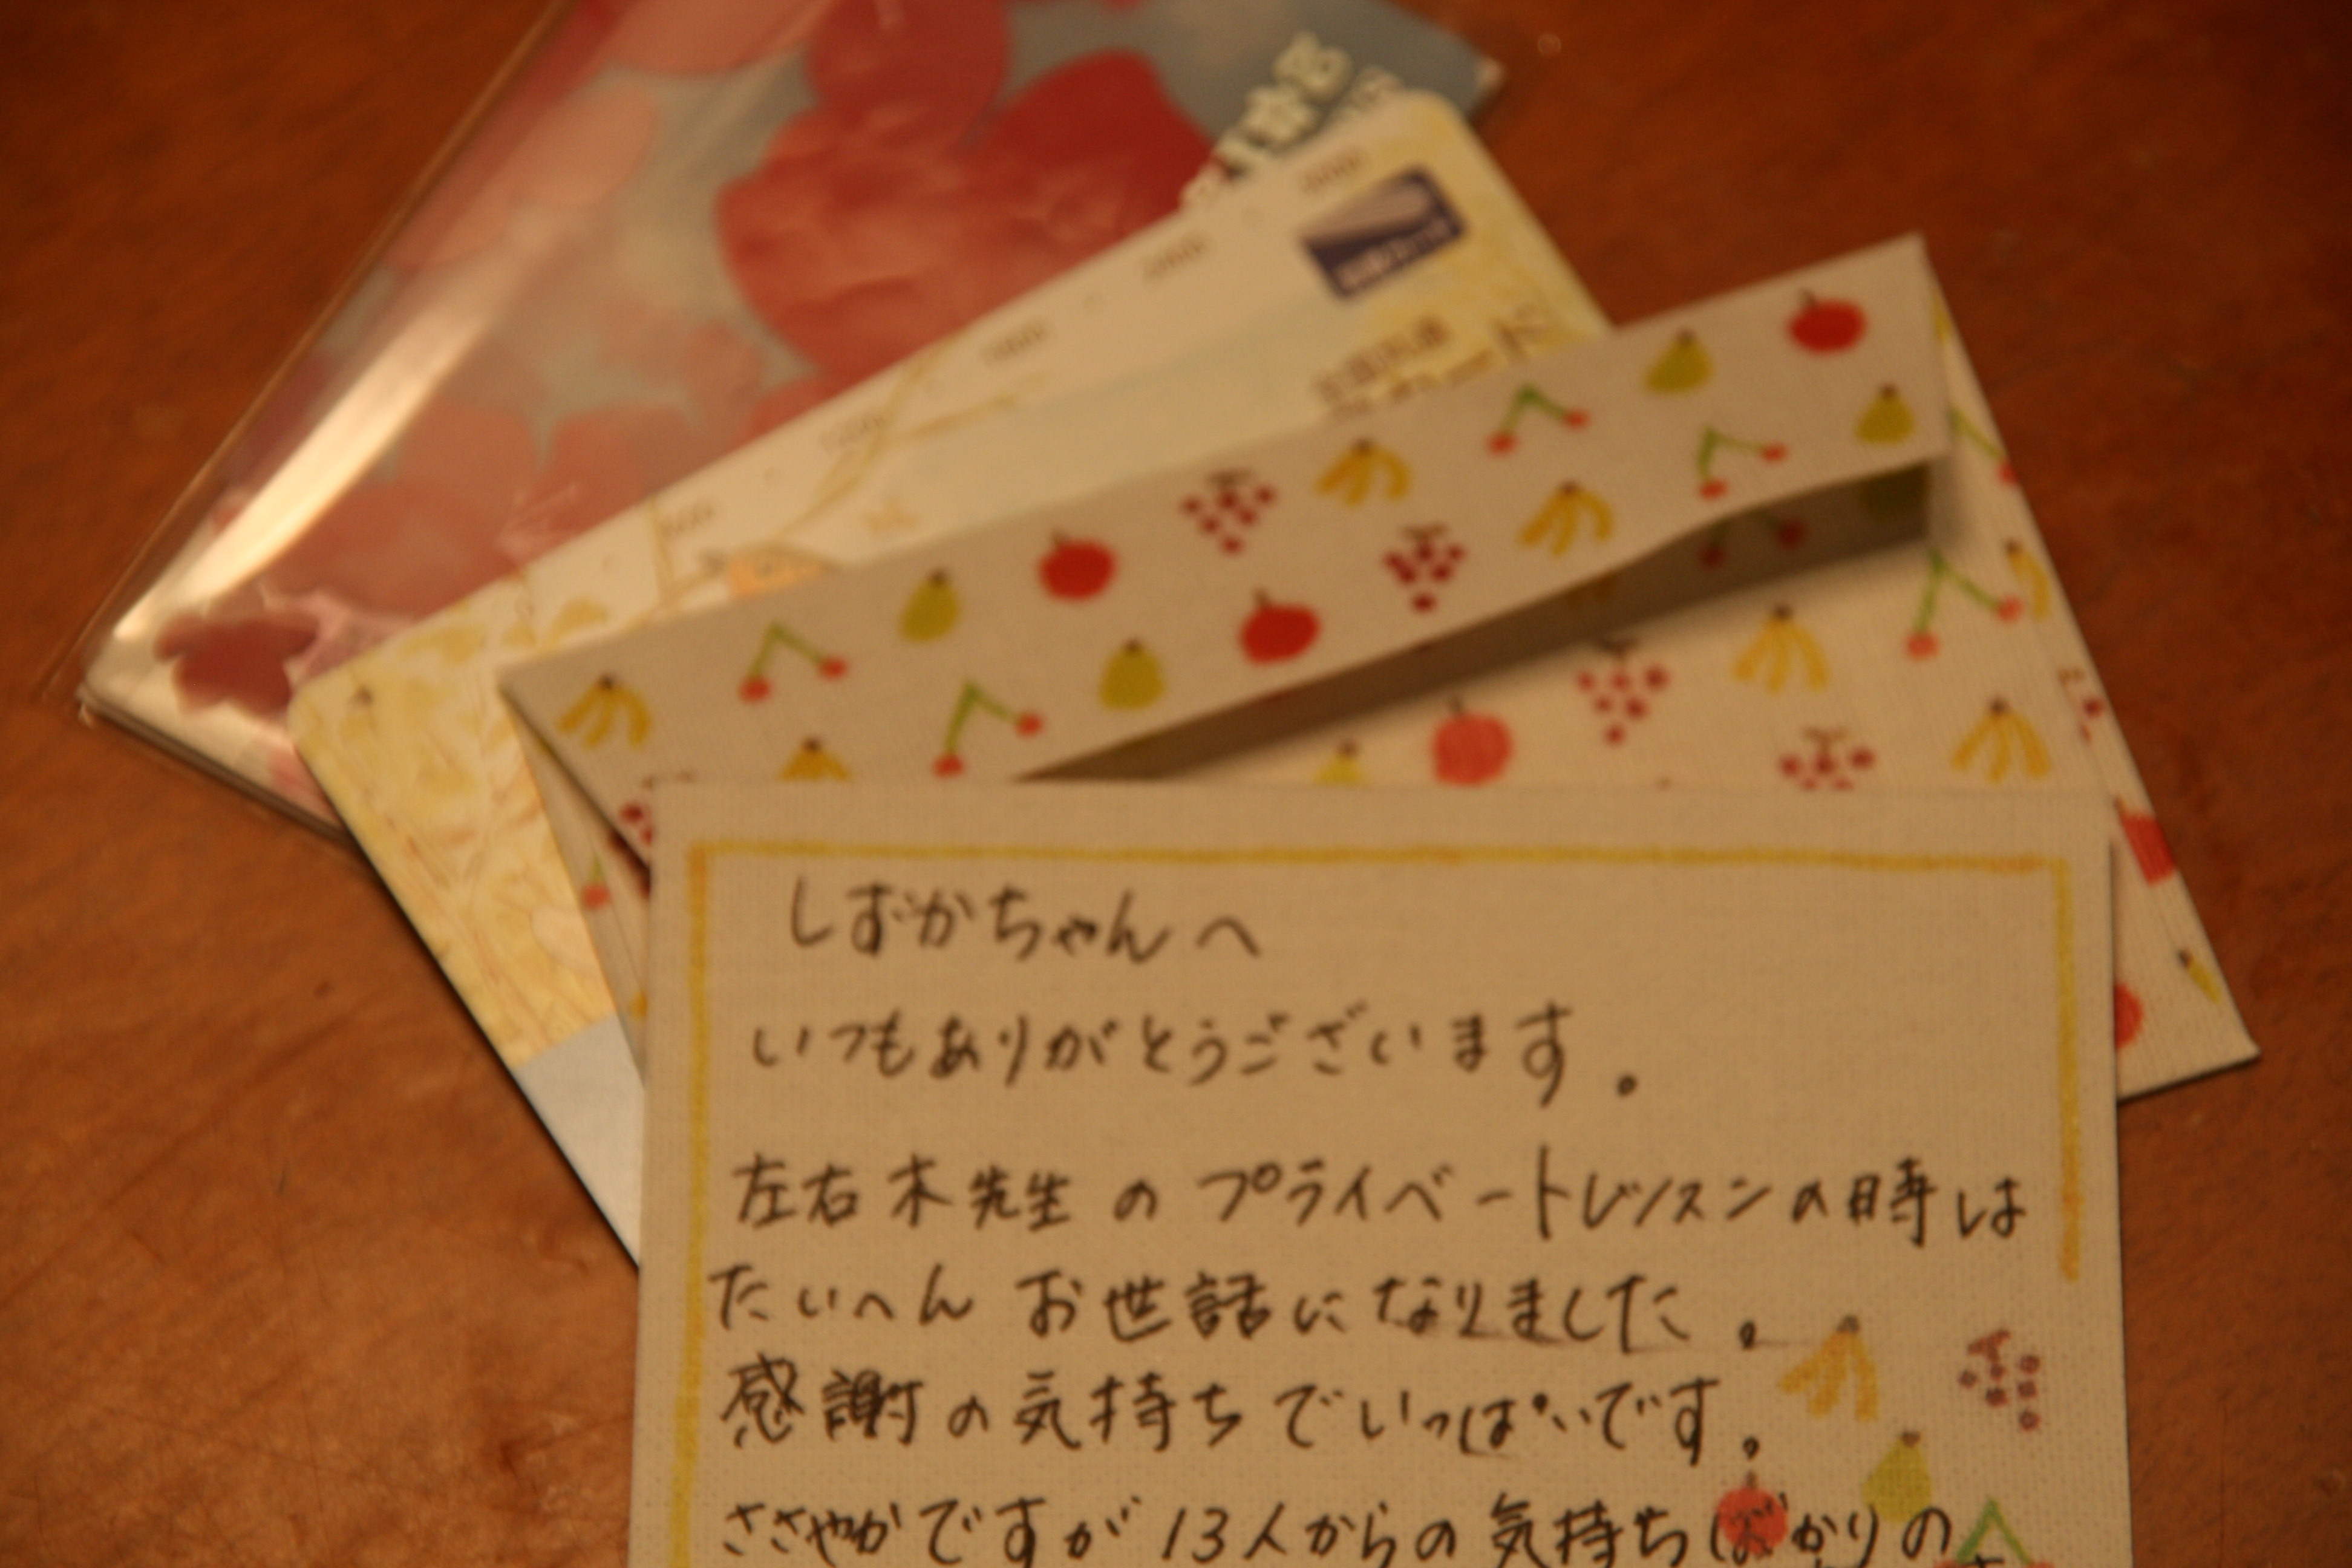 しずかちゃんへ
いつもありがとうございます。
左右木先生のプライベートレッスンの時は
たいへんお世話になりました。
感謝の気持ちでいっぱいです。
ささやかですが13人からの気持ちばかりの